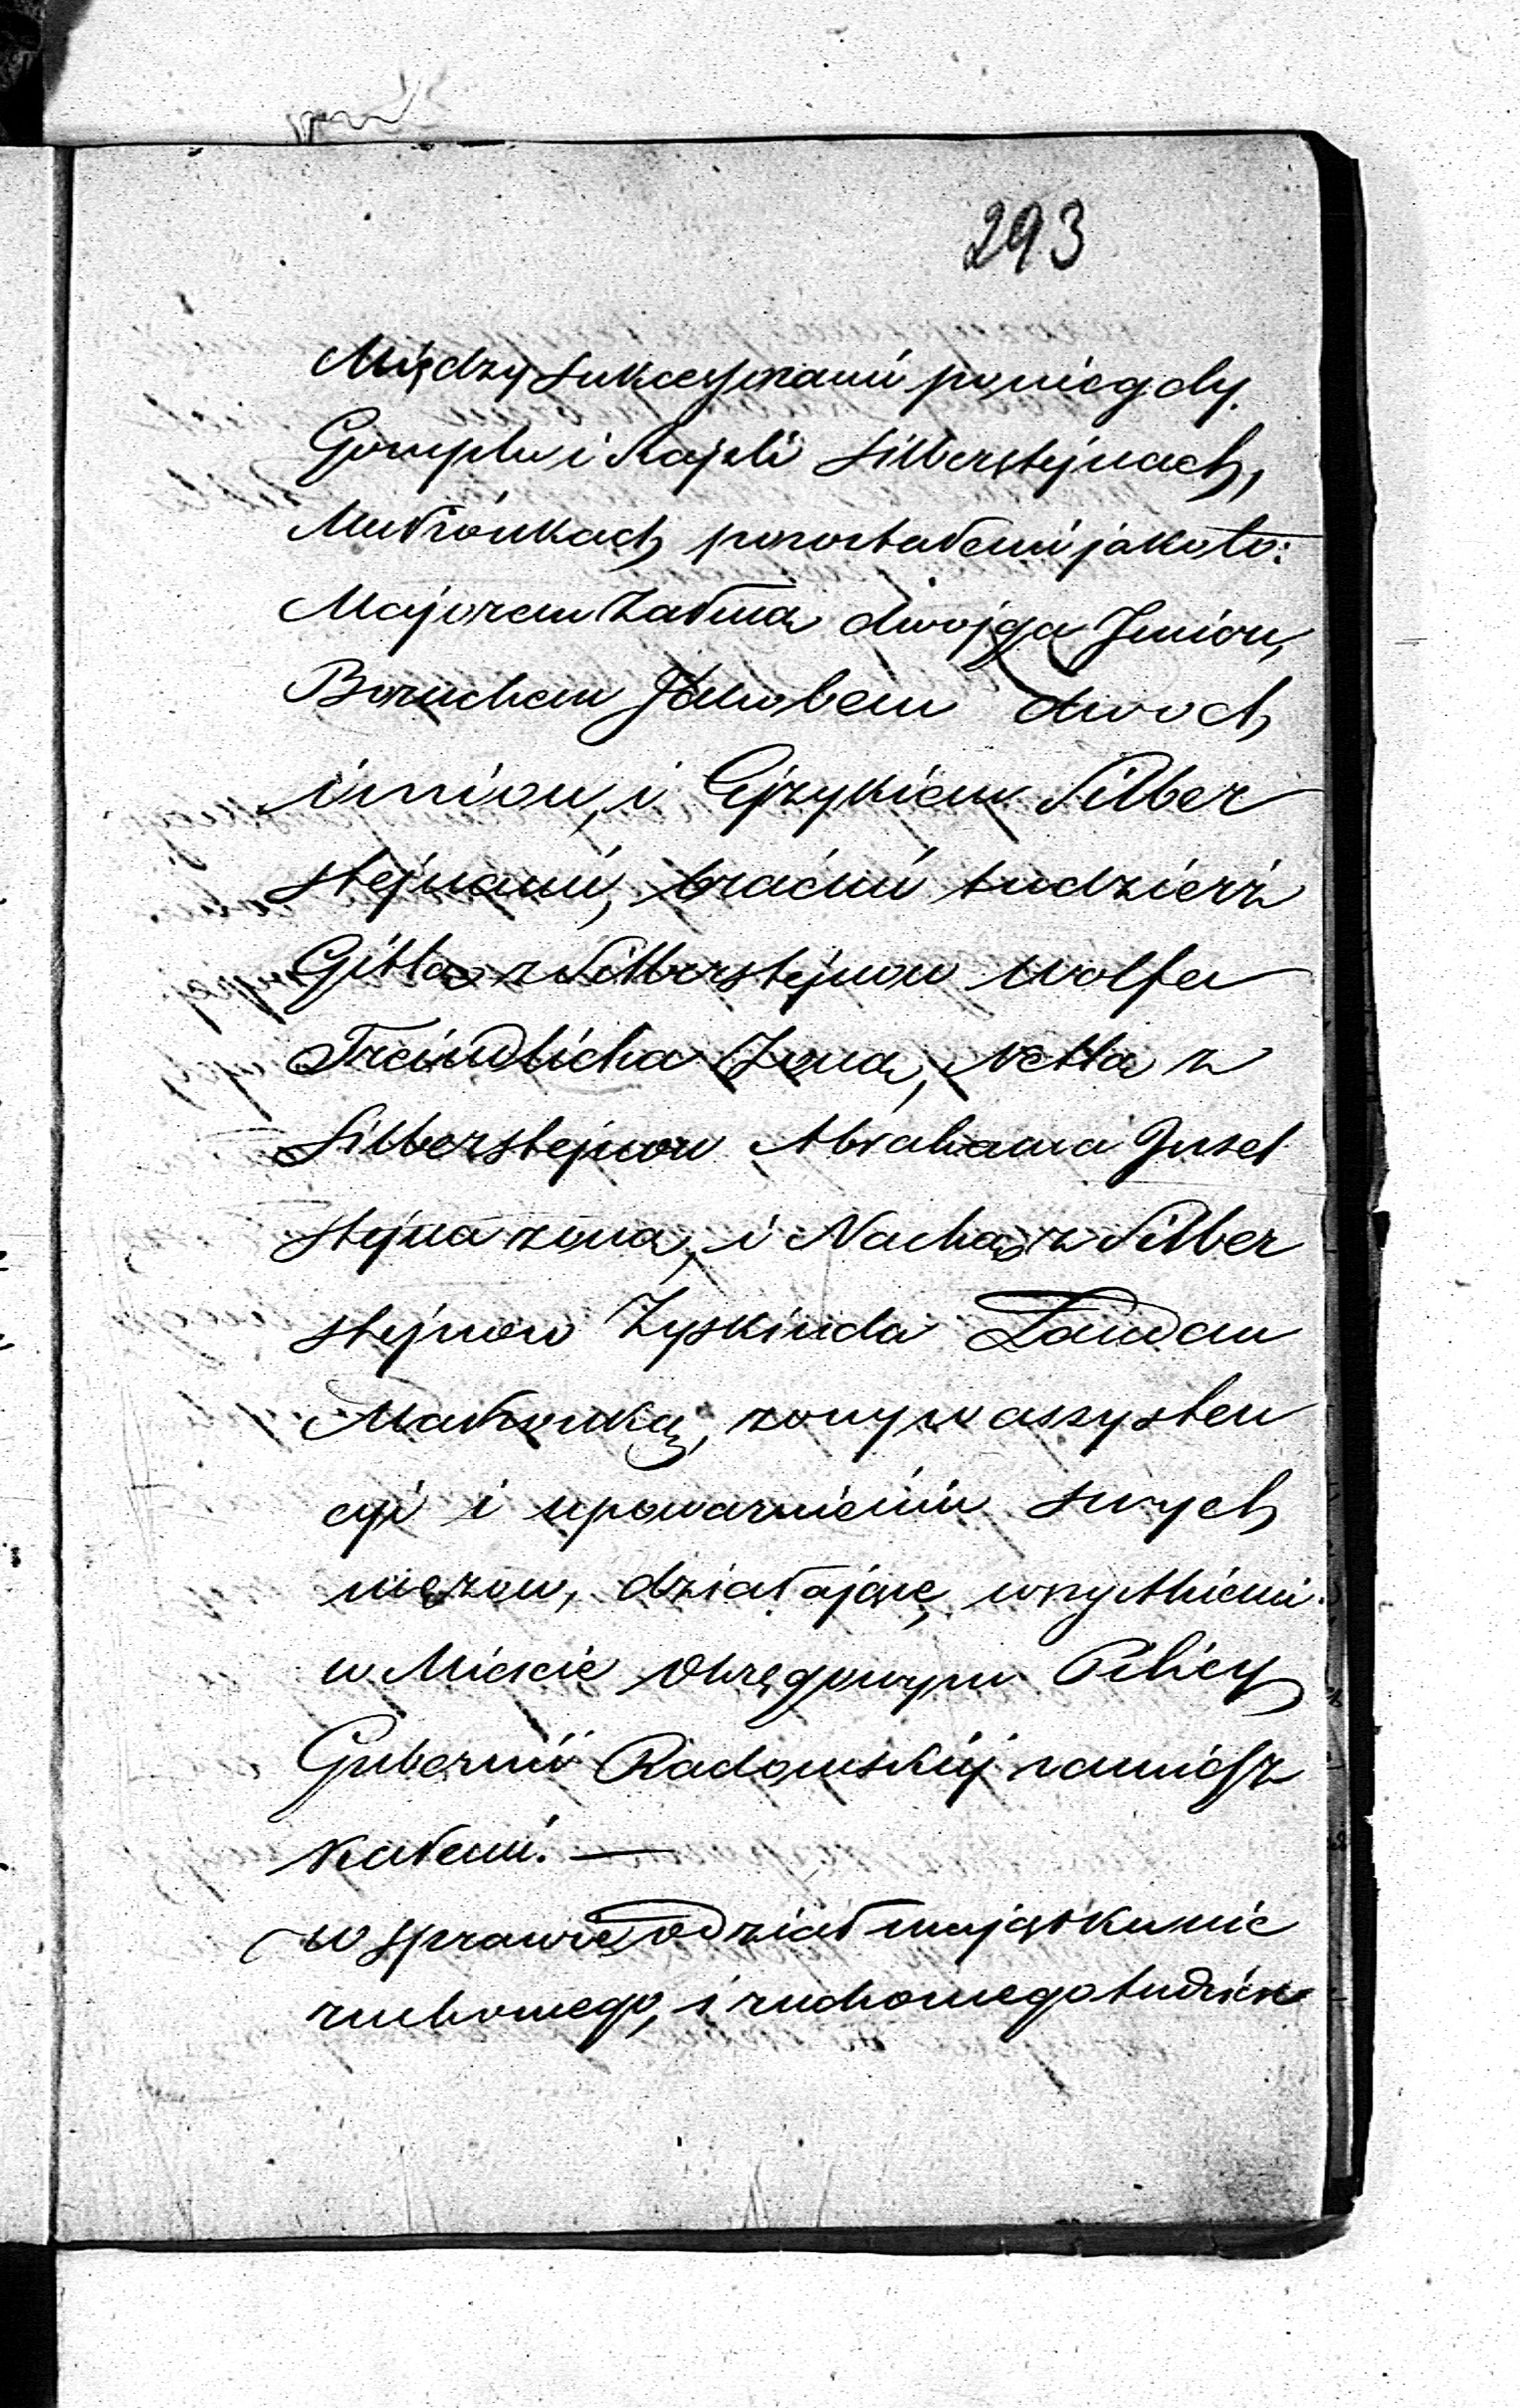 293
Między Sukcessorami poniegdy.
Gomplu i Rajzli Silbersztejnach,
Małżonkach pozostałemi jako to:
Majorem Zalmą dwojga Imion,
Boruchem Jakobem dwoch
imion, i Ejzykiem Silber
stejnami, braćmi tudzierz
Gitlą z Silberstejnow Wolfa
Freindlicha Żoną, Nettą z
Silberstejnow Abrahama Jusel
stejna żoną, i Nachą z Silber
stejnow Zyskinda Landau
Małżonką, żony w assysten
cyi i upoważnieniu swych
mężow, działające, wszystkiemi
w Mieście Okręgowym Pilicy
Gubernii Radomskiej zamiesz
kałemi. —
W sprawie o dział majątku nie
ruchomego, i ruchomego tudzież